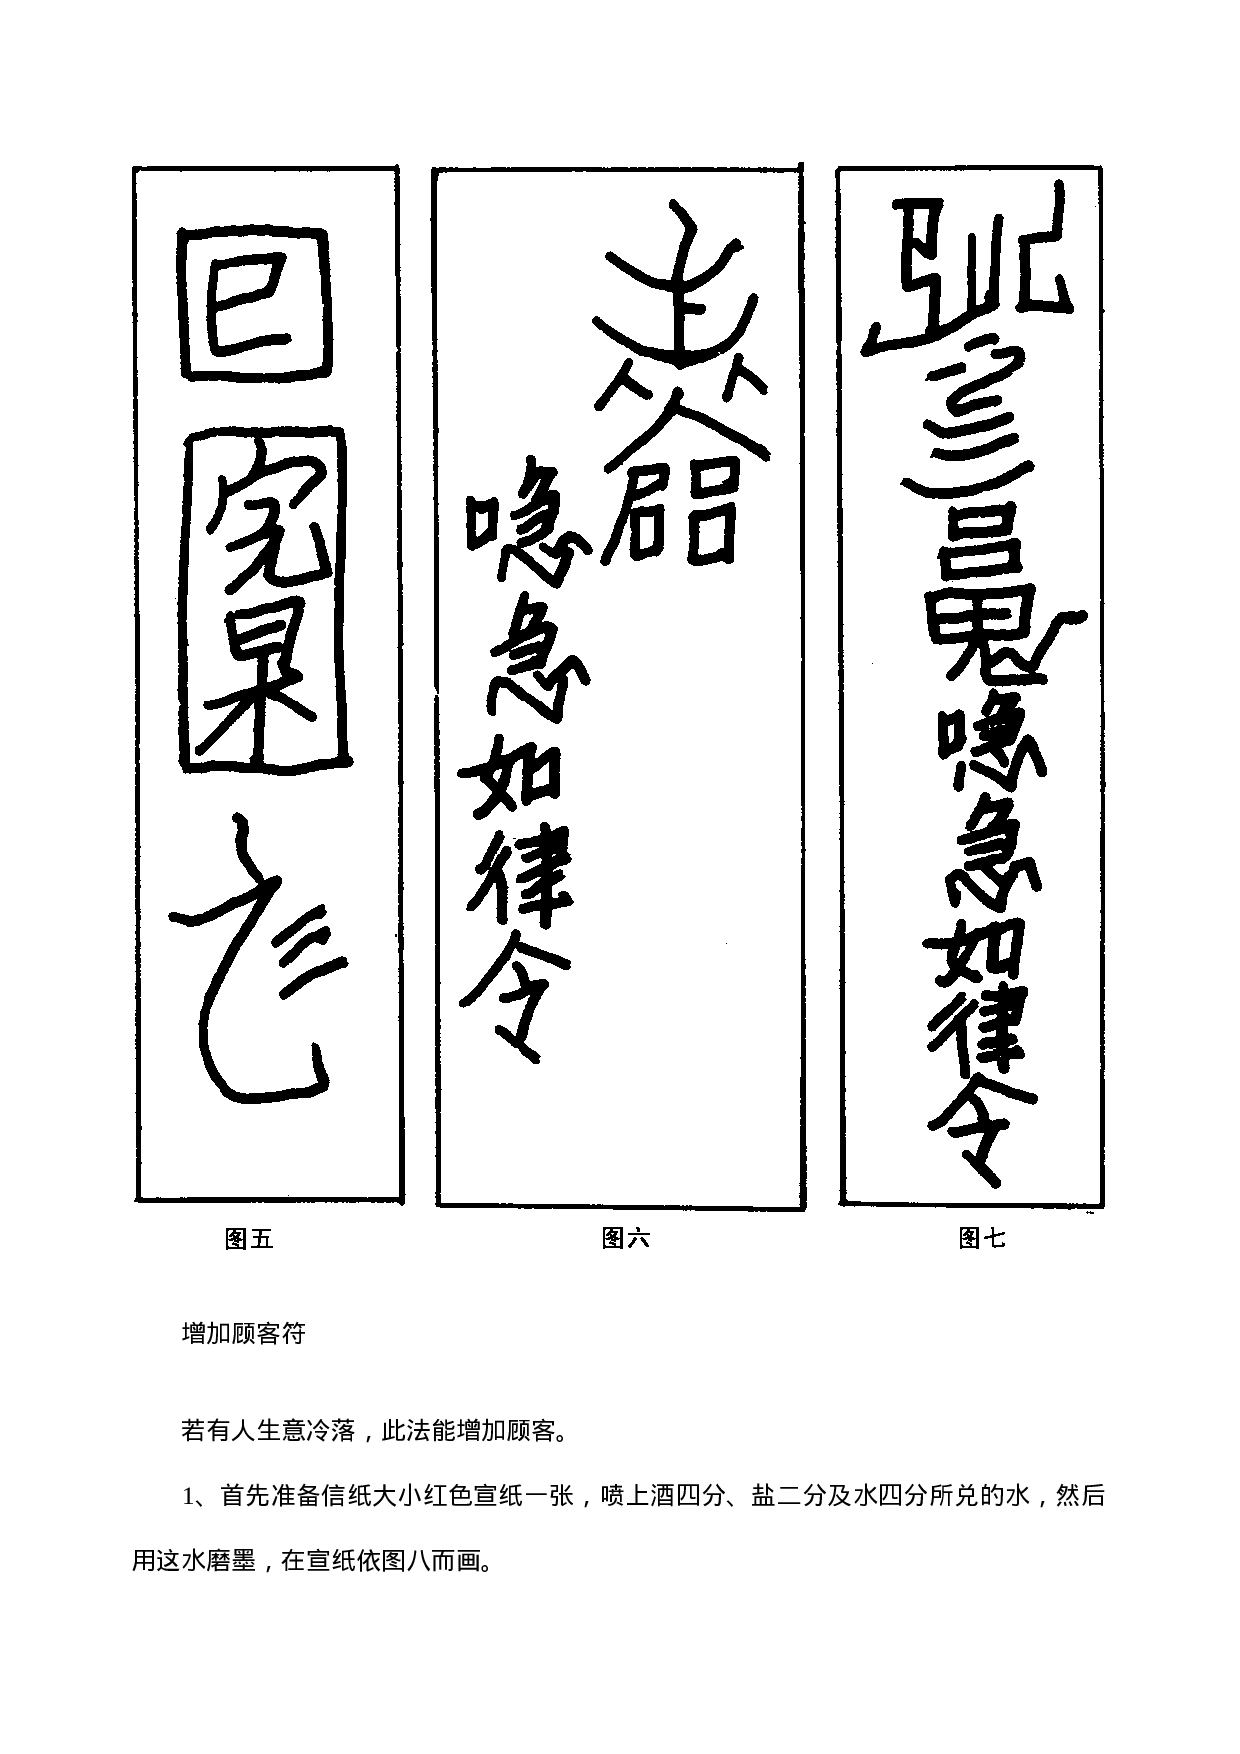 㘈急如律令
㘈急如律令
图五
图六
图七
增加顾客符
若有人生意冷落，此法能增加顾客。
1、首先准备信纸大小红色宣纸一张，喷上酒四分、盐二分及水四分所兑的水，然后
用这水磨墨，在宣纸依图八而画。